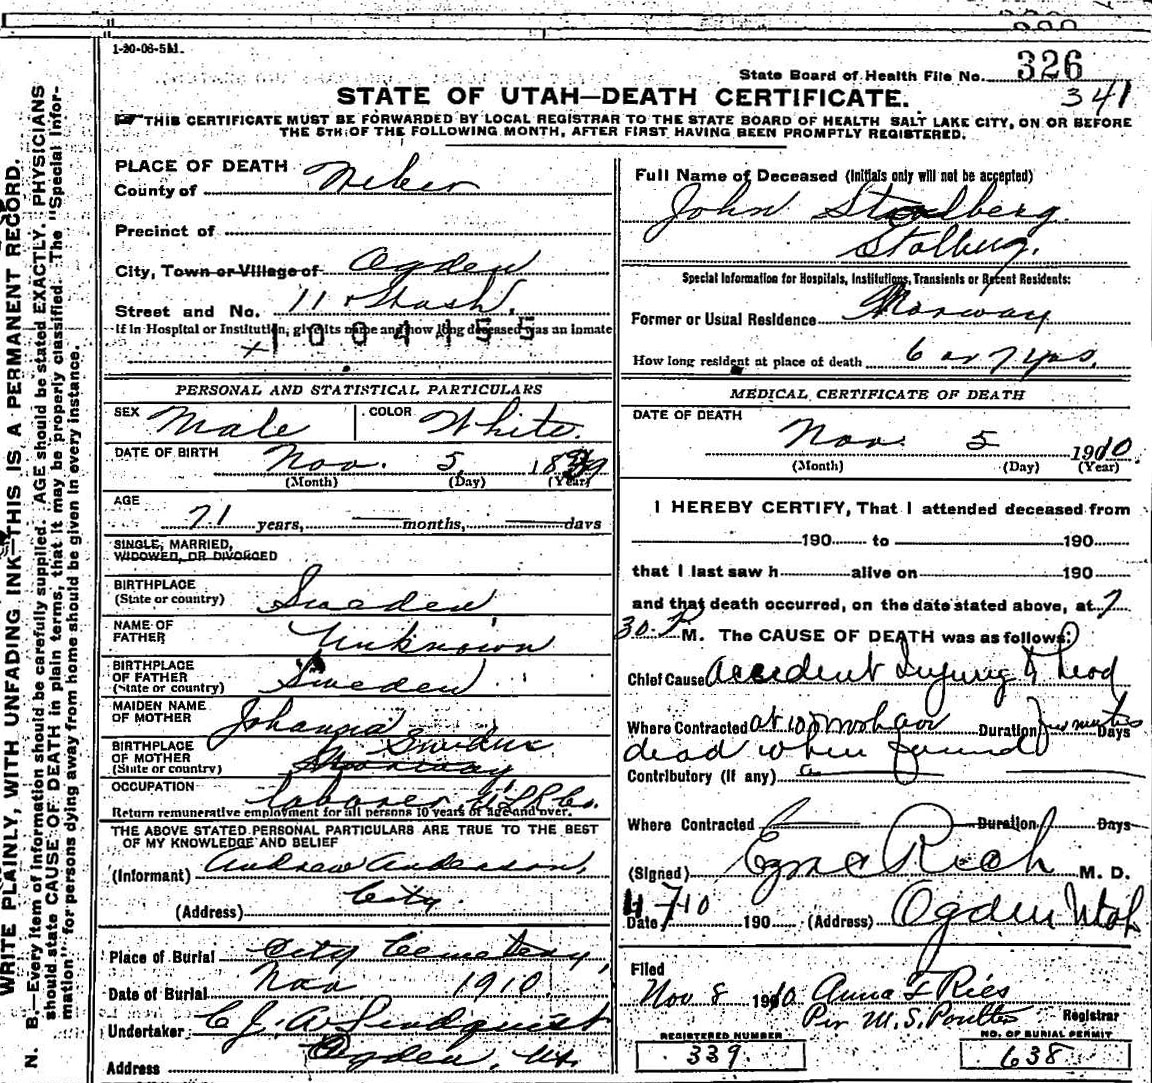 1-20-06-5M.
State Board of Health File No. 326
341
STATE OF UTAH—DEATH CERTIFICATE.
THIS CERTIFICATE MUST BE FORWARDED BY LOCAL REGISTRAR TO THE STATE BOARD OF HEALTH SALT LAKE CITY, ON OR BEFORE
THE 5TH OF THE FOLLOWING MONTH, AFTER FIRST HAVING BEEN PROMPTLY REGISTERED.
WRITE PLAINLY, WITH UNFADING INK—THIS IS A PERMANENT RECORD.
N. B.—Every item of information should be carefully supplied. AGE should be stated EXACTLY. PHYSICIANS
should state CAUSE OF DEATH in plain terms, that it may be properly classified. The "Special Infor-
mation" for persons dying away from home should be given in every instance.
PLACE OF DEATH
County of Weber
Precinct of
City, Town or Village of Ogden
Street and No. 11 & Wash.
If in Hospital or Institution, give its name and how long deceased was an inmate
1004155
PERSONAL AND STATISTICAL PARTICULARS
SEX Male COLOR White.
DATE OF BIRTH Nov. 5, 1839
(Month) (Day) (Year)
AGE
71 years, months, days
SINGLE, MARRIED,
WIDOWED, OR DIVORCED
BIRTHPLACE
(State or country) Sweden
NAME OF
FATHER Unknown
BIRTHPLACE
OF FATHER
(State or country) Sweden
MAIDEN NAME
OF MOTHER Johanna
BIRTHPLACE
OF MOTHER
(State or country) Norway
OCCUPATION
laborer
Return remunerative employment for all persons 10 years of age and over.
THE ABOVE STATED PERSONAL PARTICULARS ARE TRUE TO THE BEST
OF MY KNOWLEDGE AND BELIEF
(Informant) Andrew Anderson,
(Address) City.
Place of Burial City Cemetery,
Date of Burial Nov 1910.
Undertaker C. J. A. Lindquist
Address Ogden, Ut.
Full Name of Deceased (Initials only will not be accepted)
John Stodberg
Stolberg.
Special Information for Hospitals, Institutions, Transients or Recent Residents:
Former or Usual Residence Norway
How long resident at place of death 6 or 7 yrs.
MEDICAL CERTIFICATE OF DEATH
DATE OF DEATH
Nov. 5 1910.
(Month) (Day) (Year)
I HEREBY CERTIFY, That I attended deceased from
190 to 190
that I last saw h alive on 190
and that death occurred, on the date stated above, at 7
30 P M. The CAUSE OF DEATH was as follows:
Chief Cause Accident Injury to head
Where Contracted Duration few minutes Days
dead when found
Contributory (if any)
Where Contracted Duration Days
(Signed) Ezra C Rich M. D.
Date 11 7 10 190 (Address) Ogden Utah
Filed
Nov 8 1910 Anna F Ries
Per M. S. Poulter Registrar
REGISTERED NUMBER
339
NO. OF BURIAL PERMIT
638